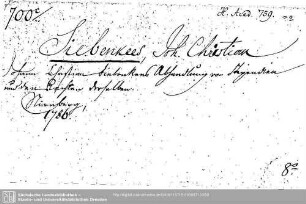 700c
H. Acad. 789.
Siebenkees, Joh. Christian
Johann Christian Siebenkees Abhandlung von Stipendien
und den Rechten derselben.
Nürnberg,
1786.
8°
Sächsische Landesbibliothek -
Staats- und Universitätsbibliothek Dresden